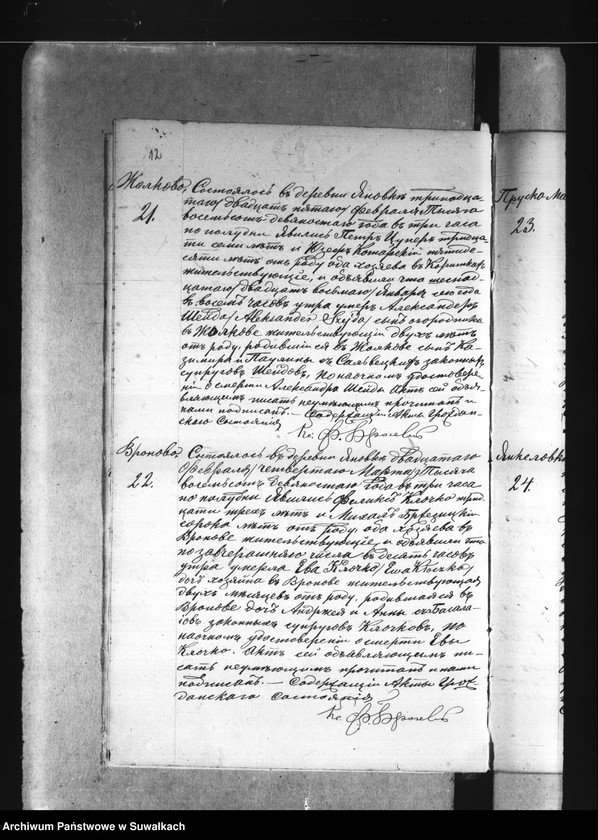 12
Жолково,
21.
Состоялось въ деревни Яновкѣ тринадца-
таго / двадцать пятаго / Февраля Тысяча
восемьсотъ девяностаго года въ три часа
по полудни Явились Петръ Цуперъ тридца-
ти семи лѣтъ и Юзефъ Комарскій пятиде-
сяти лѣтъ отъ роду оба хозяева въ
жительствующіе, и объявили что шестнад-
цатаго / двадцать восьмаго / Января сего года
въ восемь часовъ утра умеръ Александеръ
Шейда / Aleksander Szejda / сынъ огородника
въ Жолкове жительствующій двухъ лѣтъ
отъ роду, родившійся въ Жолкове сынъ Ка-
зимира и Паулины съ законныхъ
супруговъ Шейдовъ, По наочномъ удостовере-
ніи о смерти Александра Шейды Актъ сей объя-
вляющимъ писать неумѣющимъ прочитанъ и
нами подписанъ. — Содержащій Акты Граждан-
скаго Состоянія
Вроново
22.
Состоялось въ деревни Яновкѣ двадцатаго
Февраля / четвертаго Марта / Тысяча
восемьсотъ девяностаго года въ три часа
по полудни Явились Феликсъ Клочко трид-
цати трехъ лѣтъ и Михалъ Бржезицкій
сорока лѣтъ отъ роду, оба хозяева въ
Вронове жительствующіе, и объявили что
позавчерашняго числа въ десять часовъ
утра умерла Ева Клочко / Ewa Kłoczko /
дочь хозяина въ Вронове жительствующая
двухъ мѣсяцевъ отъ роду, родившаяся въ
Вронове дочь Андржея и Анны съ
законныхъ супруговъ Клочковъ, По
наочномъ удостовереніи о смерти Евы
Клочко. Актъ сей объявляющимъ пи-
сать неумѣющимъ прочитанъ и нами
подписанъ. — Содержащій Акты Граж-
данскаго Состоянія
23.
24.
Archiwum Państwowe w Suwałkach